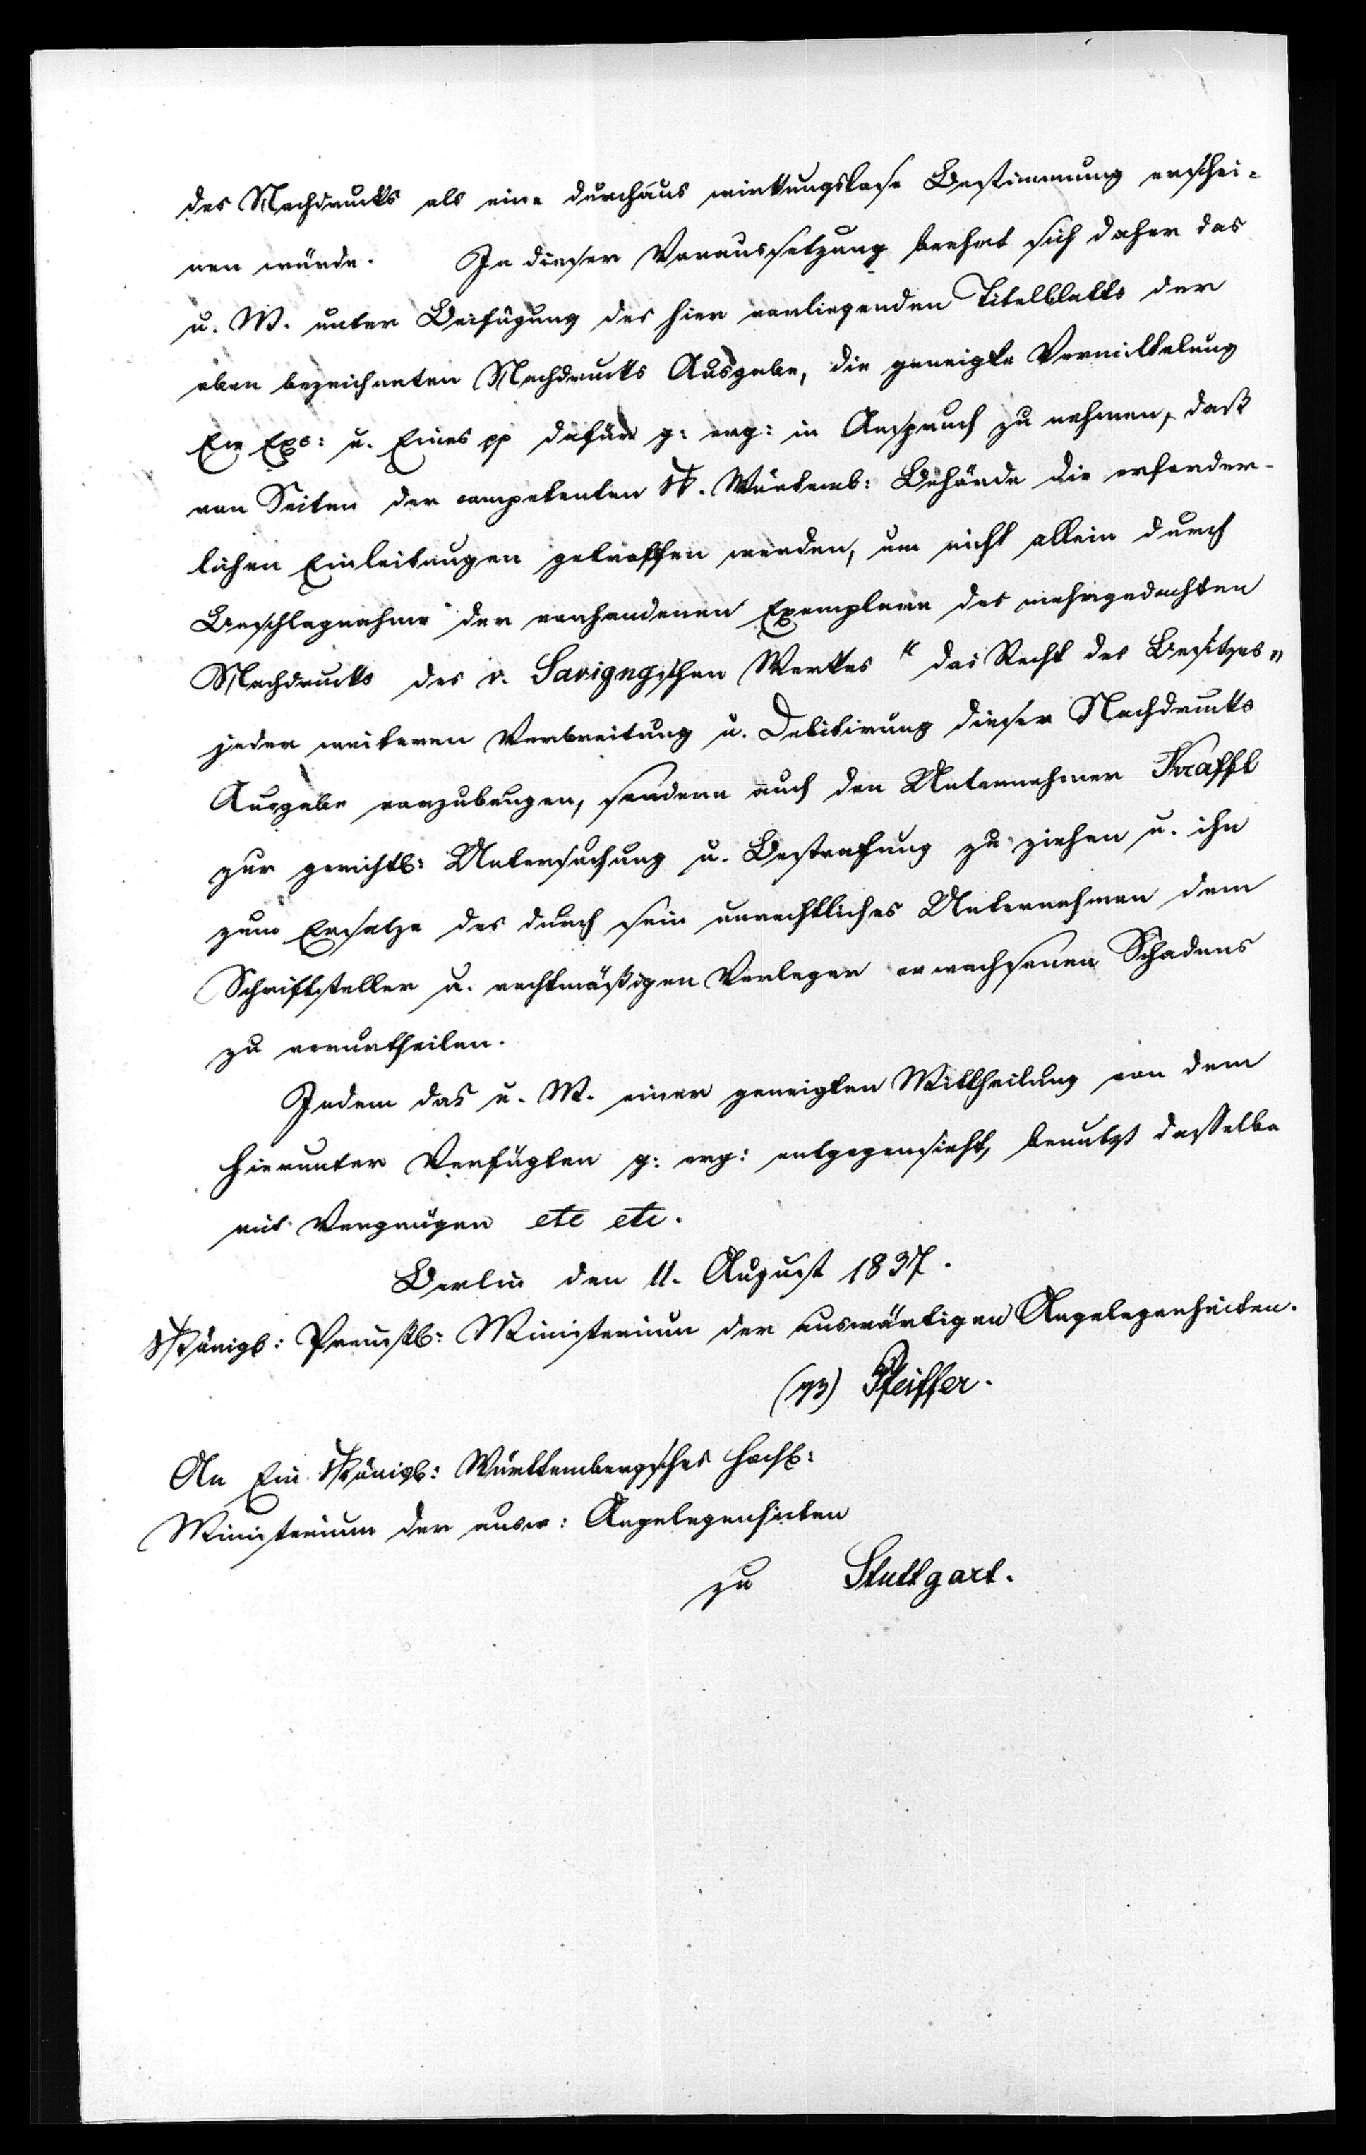 des Nachdrucks als eine durchaus wirkungslose Bestimmung erschei-
nen würde. In dieser Voraussetzung beehrt sich daher das
u. M. unter Beifügung des hier vorliegenden Titelblatts der
oben bezeichneten Nachdrucks Ausgabe, die geneigte Vermittelung
Ew Exc: u. Eines pp dafür g: erg: in Anspruch zu nehmen, daß
von Seiten der competenten K. Würtemb: Behörde die erforder-
lichen Einleitungen getroffen werden, um nicht allein durch
Beschlagnahme der vorhandenen Exemplare des mehrgedachten
Nachdrucks des v. Savignyschen Werkes "das Recht des Besitzes"
jeder weiteren Verbreitung u. Debitirung dieser Nachdrucks
Ausgabe vorzubeugen, sondern auch den Unternehmer Kraffl
zur gerichtl: Untersuchung u. Bestrafung zu ziehen u. ihn
zum Ersatze des durch sein unrechtliches Unternehmen dem
Schriftsteller u. rechtmäßigen Verleger erwachsenen Schadens
zu verurtheilen.
Indem das u. M. einer geneigten Mittheilung von dem
hierunter Verfügten g: erg: entgegensieht, benutzt dasselbe
mit Vergnügen etc etc.
Berlin den 11. August 1837.
Königl: Preußl: Ministerium der auswärtigen Angelegenheiten.
(gz) Pfeiffer.
An Ein Königl: Württembergsches Hochl:
Ministerium der ausw: Angelegenheiten
zu Stuttgart.